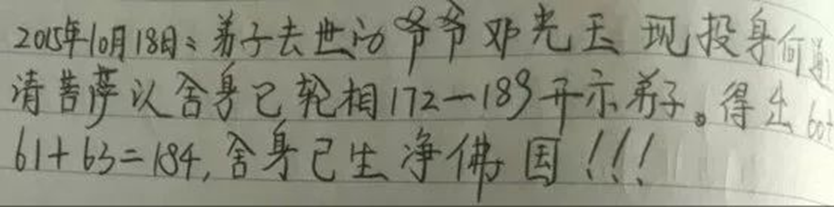 2015年10月18日:弟子去世的爷爷邓光玉现投身何道
请菩萨以舍身已轮相172一189开示弟子。得出60+
61+63=184,舍身已生净佛国!!!